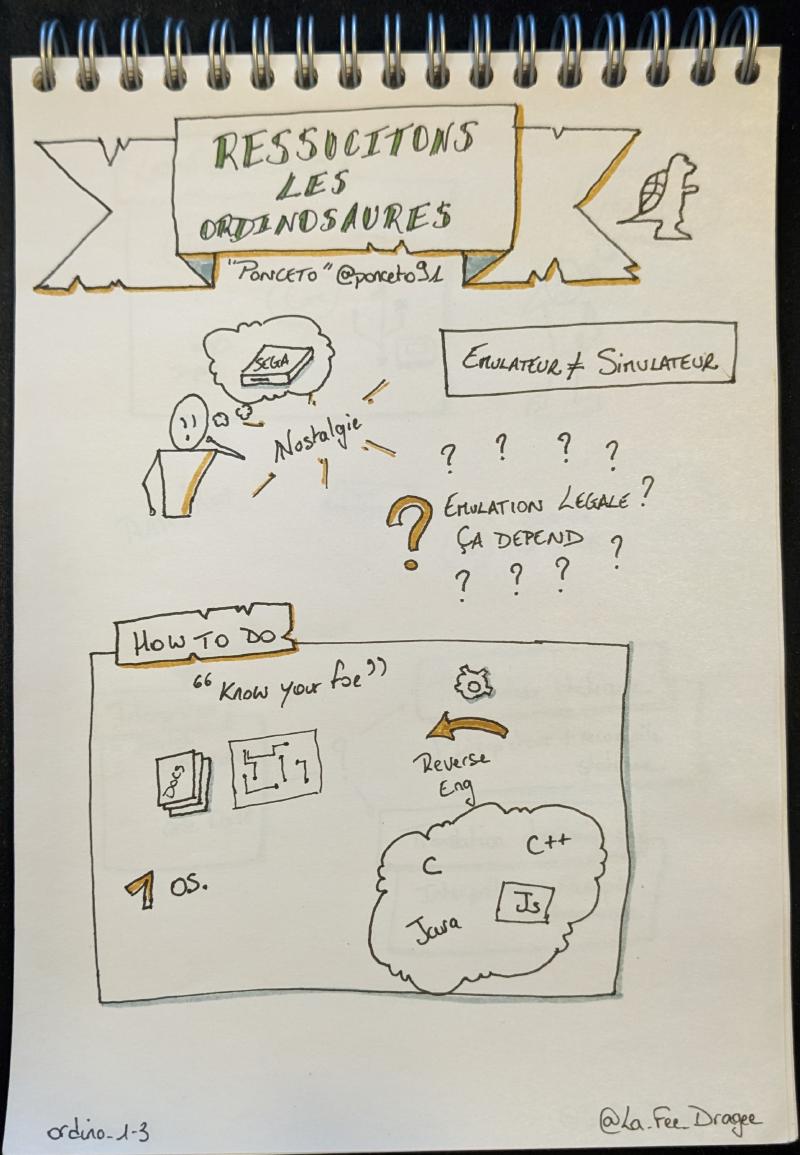 RESSUCITONS
LES
ORDINOSAURES
"PONCETO" @ponceto91
SEGA
Nostalgie
EMULATEUR ≠ SIMULATEUR
? ? ? ?
? EMULATION LEGALE ?
ÇA DEPEND
? ? ? ?
HOW TO DO
“ Know your foe ”
Docs
Reverse
Eng
1 OS.
C
C++
Java
Js
ordino_1-3
@La_Fee_Dragee